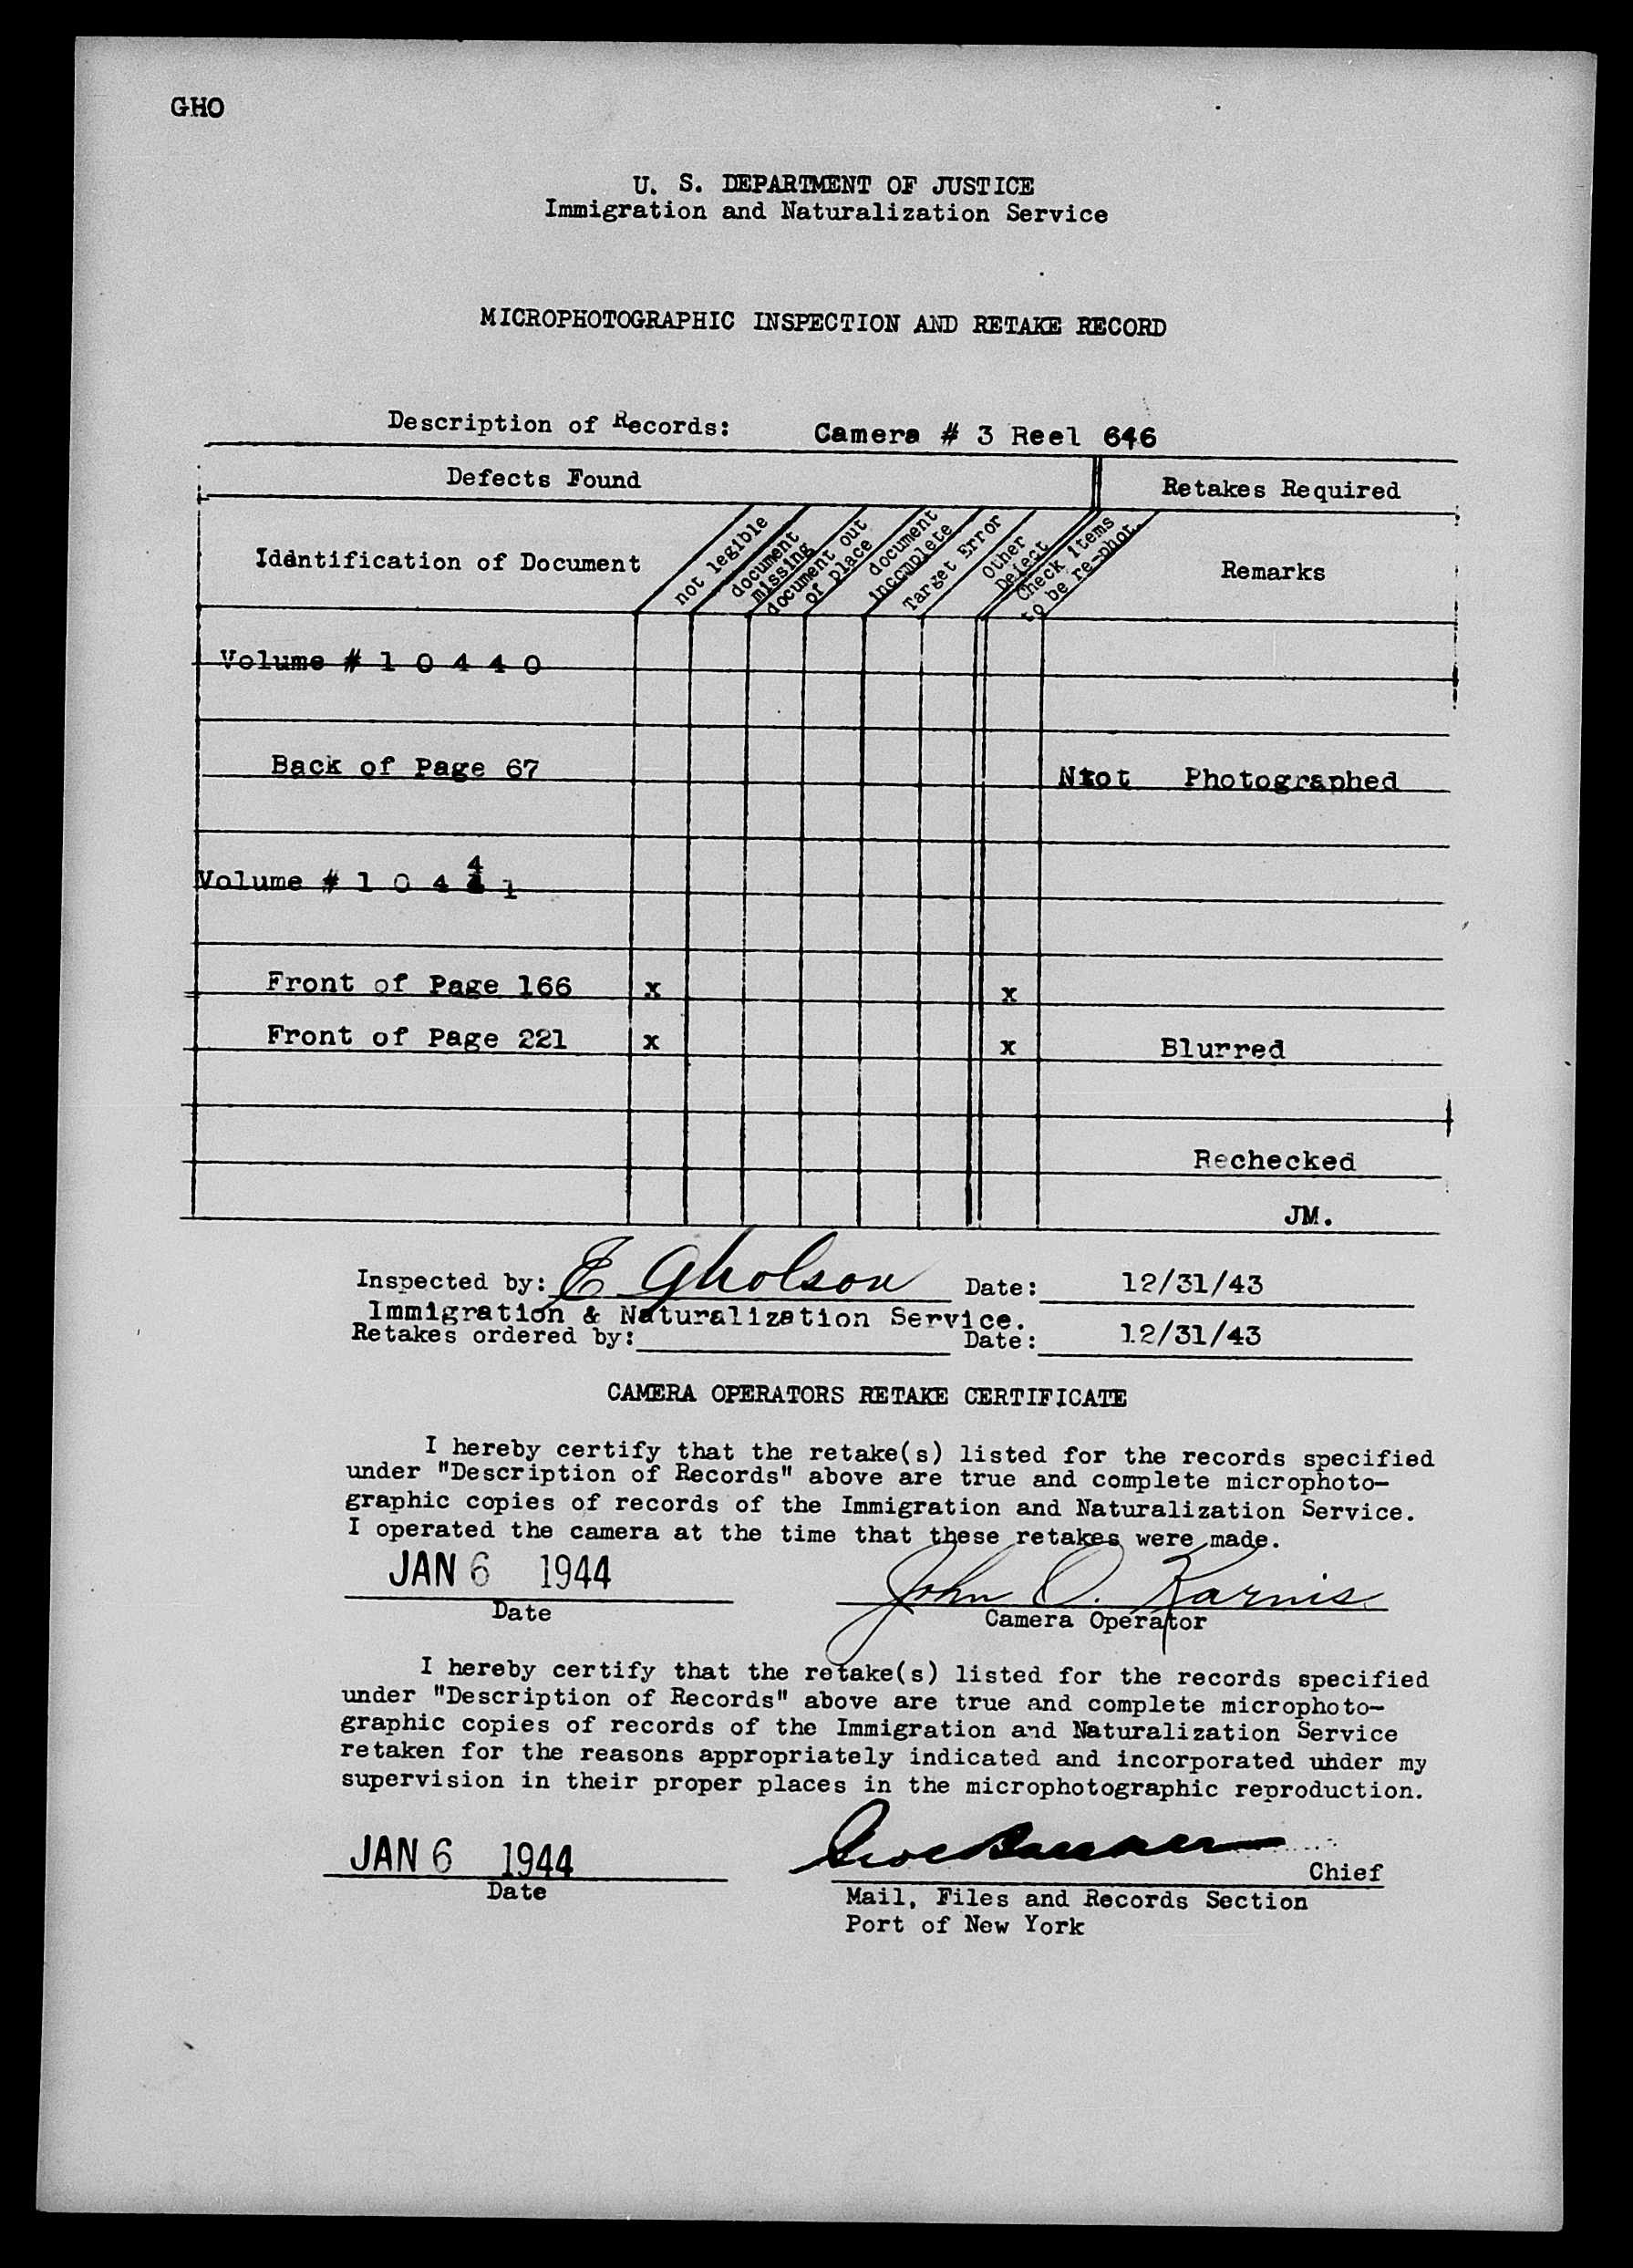 GHO
U. S. DEPARTMENT OF JUSTICE
Immigration and Naturalization Service
MICROPHOTOGRAPHIC INSPECTION AND RETAKE RECORD
Description of Records: Camera # 3 Reel 646
Defects Found Retakes Required
Identification of Document not legible document missing document out of place document incomplete Target Error Other Defect Check items to be re-phot. Remarks
Volume # 1 0 4 4 0
Back of Page 67 Ntot Photographed
Volume # 1 0 4 4 1
Front of Page 166 x x
Front of Page 221 x x Blurred
Rechecked
JM.
Inspected by: E Gholson Date: 12/31/43
Immigration & Naturalization Service.
Retakes ordered by: Date: 12/31/43
CAMERA OPERATORS RETAKE CERTIFICATE
I hereby certify that the retake(s) listed for the records specified
under "Description of Records" above are true and complete microphoto-
graphic copies of records of the Immigration and Naturalization Service.
I operated the camera at the time that these retakes were made.
JAN 6 1944 John O. Karnis
Date Camera Operator
I hereby certify that the retake(s) listed for the records specified
under "Description of Records" above are true and complete microphoto-
graphic copies of records of the Immigration and Naturalization Service
retaken for the reasons appropriately indicated and incorporated under my
supervision in their proper places in the microphotographic reproduction.
JAN 6 1944 Chief
Date Mail, Files and Records Section
Port of New York